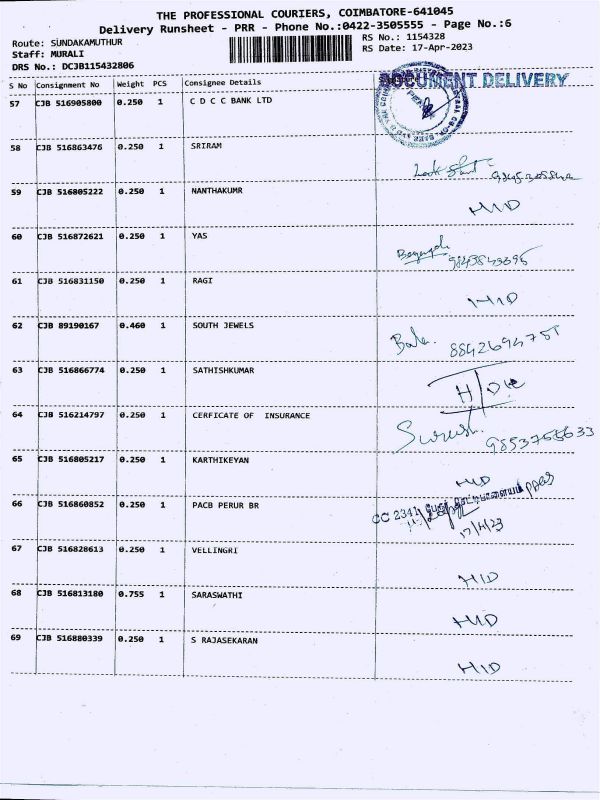 THE PROFESSIONAL COURIERS, COIMBATORE-641045
Delivery Runsheet - PRR - Phone No.:0422-3505555 - Page No.:6
Route: SUNDAKAMUTHUR
RS No.: 1154328
Staff: MURALI
RS Date: 17-Apr-2023
DRS No.: DCJB115432806
S No Consignment No Weight PCS Consignee Details
DOCUMENT DELIVERY
57 CJB 516905800 0.250 1 C D C C BANK LTD
58 CJB 516863476 0.250 1 SRIRAM
59 CJB 516805222 0.250 1 NANTHAKUMR
HID
60 CJB 516872621 0.250 1 YAS
61 CJB 516831150 0.250 1 RAGI
HID
62 CJB 89190167 0.460 1 SOUTH JEWELS
Bala.
63 CJB 516866774 0.250 1 SATHISHKUMAR
64 CJB 516214797 0.250 1 CERFICATE OF INSURANCE
Suresh.
65 CJB 516805217 0.250 1 KARTHIKEYAN
HID
66 CJB 516860852 0.250 1 PACB PERUR BR
CC 2341
17/4/23
67 CJB 516828613 0.250 1 VELLINGRI
HID
68 CJB 516813180 0.755 1 SARASWATHI
HID
69 CJB 516880339 0.250 1 S RAJASEKARAN
HID